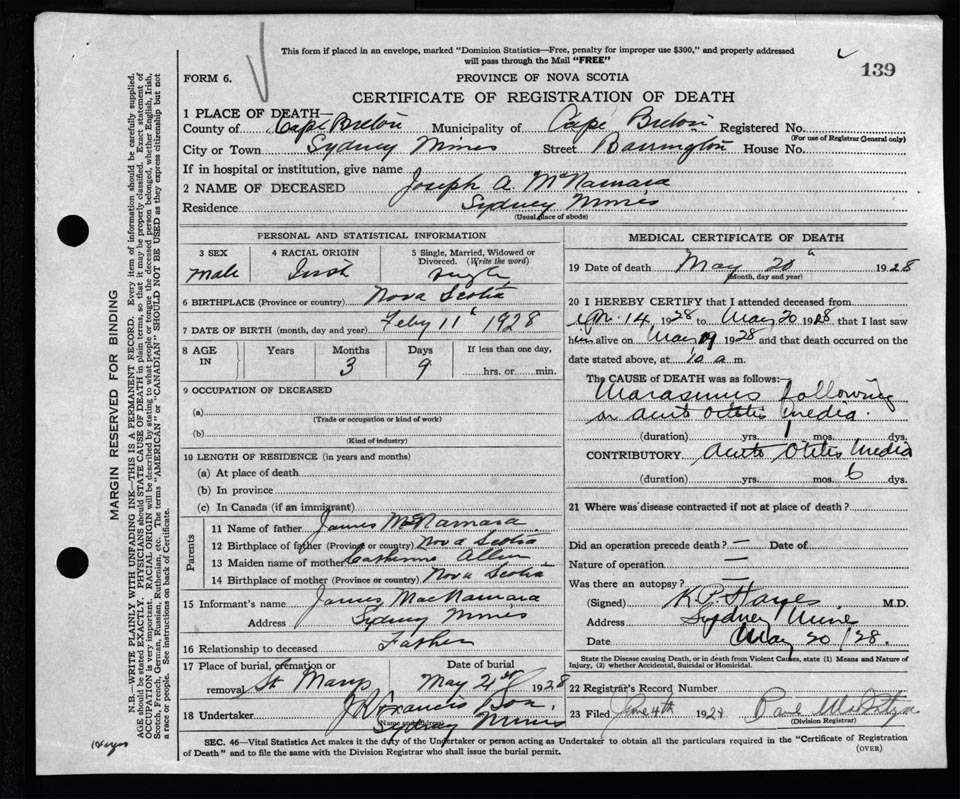 This form if placed in an envelope, marked "Dominion Statistics—Free, penalty for improper use $300," and properly addressed
will pass through the Mail "FREE"
139
FORM 6.
PROVINCE OF NOVA SCOTIA
CERTIFICATE OF REGISTRATION OF DEATH
1 PLACE OF DEATH—
County of Cape Breton Municipality of Cape Breton Registered No.
(For use of Registrar General only)
City or Town Sydney Mines Street Barrington House No.
If in hospital or institution, give name
2 NAME OF DECEASED Joseph A. McNamara
Residence Sydney Mines
(Usual place of abode)
PERSONAL AND STATISTICAL INFORMATION
3 SEX male
4 RACIAL ORIGIN Irish
5 Single, Married, Widowed or Divorced. (Write the word) single
6 BIRTHPLACE (Province or country) Nova Scotia
7 DATE OF BIRTH (month, day and year) Feby 11th 1928
8 AGE IN Years Months 3 Days 9 If less than one day, hrs. or min.
9 OCCUPATION OF DECEASED
(a)
(Trade or occupation or kind of work)
(b)
(Kind of industry)
10 LENGTH OF RESIDENCE (in years and months)
(a) At place of death
(b) In province
(c) In Canada (if an immigrant)
Parents
11 Name of father James McNamara
12 Birthplace of father (Province or country) Nova Scotia
13 Maiden name of mother Catherine Allen
14 Birthplace of mother (Province or country) Nova Scotia
15 Informant's name James MacNamara
Address Sydney Mines
16 Relationship to deceased Father
17 Place of burial, cremation or removal St Marys Date of burial May 21st 1928
18 Undertaker J.R. Francis
(Name and address)
Sydney Mines
MEDICAL CERTIFICATE OF DEATH
19 Date of death May 20th 1928
(Month, day and year)
20 I HEREBY CERTIFY that I attended deceased from
Apr. 14 1928 to May 20 1928 that I last saw
him alive on May 19 1928 and that death occurred on the
date stated above, at 10 a m.
The CAUSE OF DEATH was as follows:—
Marasmus following
on acute Otitis media.
(duration) yrs. 1 mos. dys.
CONTRIBUTORY acute Otitis Media
(duration) yrs. mos. 6 dys.
21 Where was disease contracted if not at place of death?
Did an operation precede death? — Date of
Nature of operation —
Was there an autopsy? —
(Signed) K.P. Hayes M.D.
Address Sydney Mines
Date May 20/28.
State the Disease causing Death, or in death from Violent Causes, state (1) Means and Nature of
Injury, (2) whether Accidental, Suicidal or Homicidal.
22 Registrar's Record Number
23 Filed June 4th 192
(Division Registrar)
SEC. 46—Vital Statistics Act makes it the duty of the Undertaker or person acting as Undertaker to obtain all the particulars required in the "Certificate of Registration
of Death" and to file the same with the Division Registrar who shall issue the burial permit.
(OVER)
MARGIN RESERVED FOR BINDING
N.B.—WRITE PLAINLY, WITH UNFADING INK—THIS IS A PERMANENT RECORD. Every item of information should be carefully supplied.
AGE should be stated EXACTLY. PHYSICIANS should STATE CAUSE OF DEATH in plain terms, so that it may be properly classified. Exact statement of
OCCUPATION is very important. RACIAL ORIGIN will be described by stating to what people or tongue the deceased person belonged, whether English, Irish,
Scotch, French, German, Russian, Ruthenian, etc. The terms "AMERICAN" or "CANADIAN" SHOULD NOT BE USED as they express citizenship but not
a race or people. See instructions on back of Certificate.